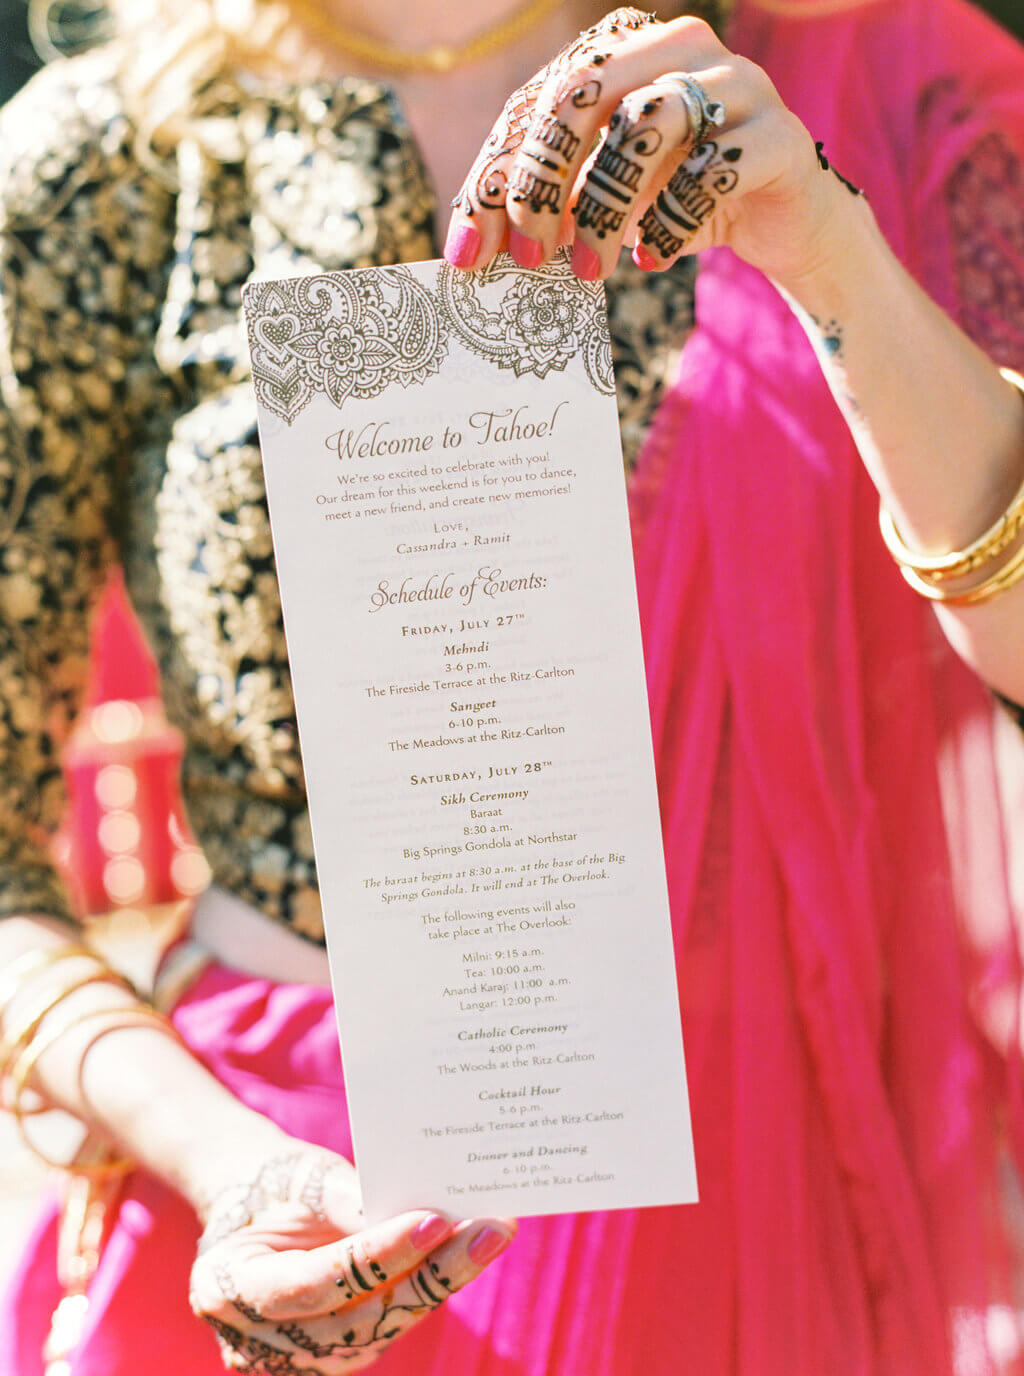 Welcome to Tahoe!
We're so excited to celebrate with you!
Our dream for this weekend is for you to dance,
meet a new friend, and create new memories!
Love,
Cassandra + Ramit
Schedule of Events:
Friday, July 27th
Mehndi
3-6 p.m.
The Fireside Terrace at the Ritz-Carlton
Sangeet
6-10 p.m.
The Meadows at the Ritz-Carlton
Saturday, July 28th
Sikh Ceremony
Baraat
8:30 a.m.
Big Springs Gondola at Northstar
The baraat begins at 8:30 a.m. at the base of the Big
Springs Gondola. It will end at The Overlook.
The following events will also
take place at The Overlook:
Milni: 9:15 a.m.
Tea: 10:00 a.m.
Anand Karaj: 11:00 a.m.
Langar: 12:00 p.m.
Catholic Ceremony
4:00 p.m.
The Woods at the Ritz-Carlton
Cocktail Hour
5-6 p.m.
The Fireside Terrace at the Ritz-Carlton
Dinner and Dancing
6-10 p.m.
The Meadows at the Ritz-Carlton